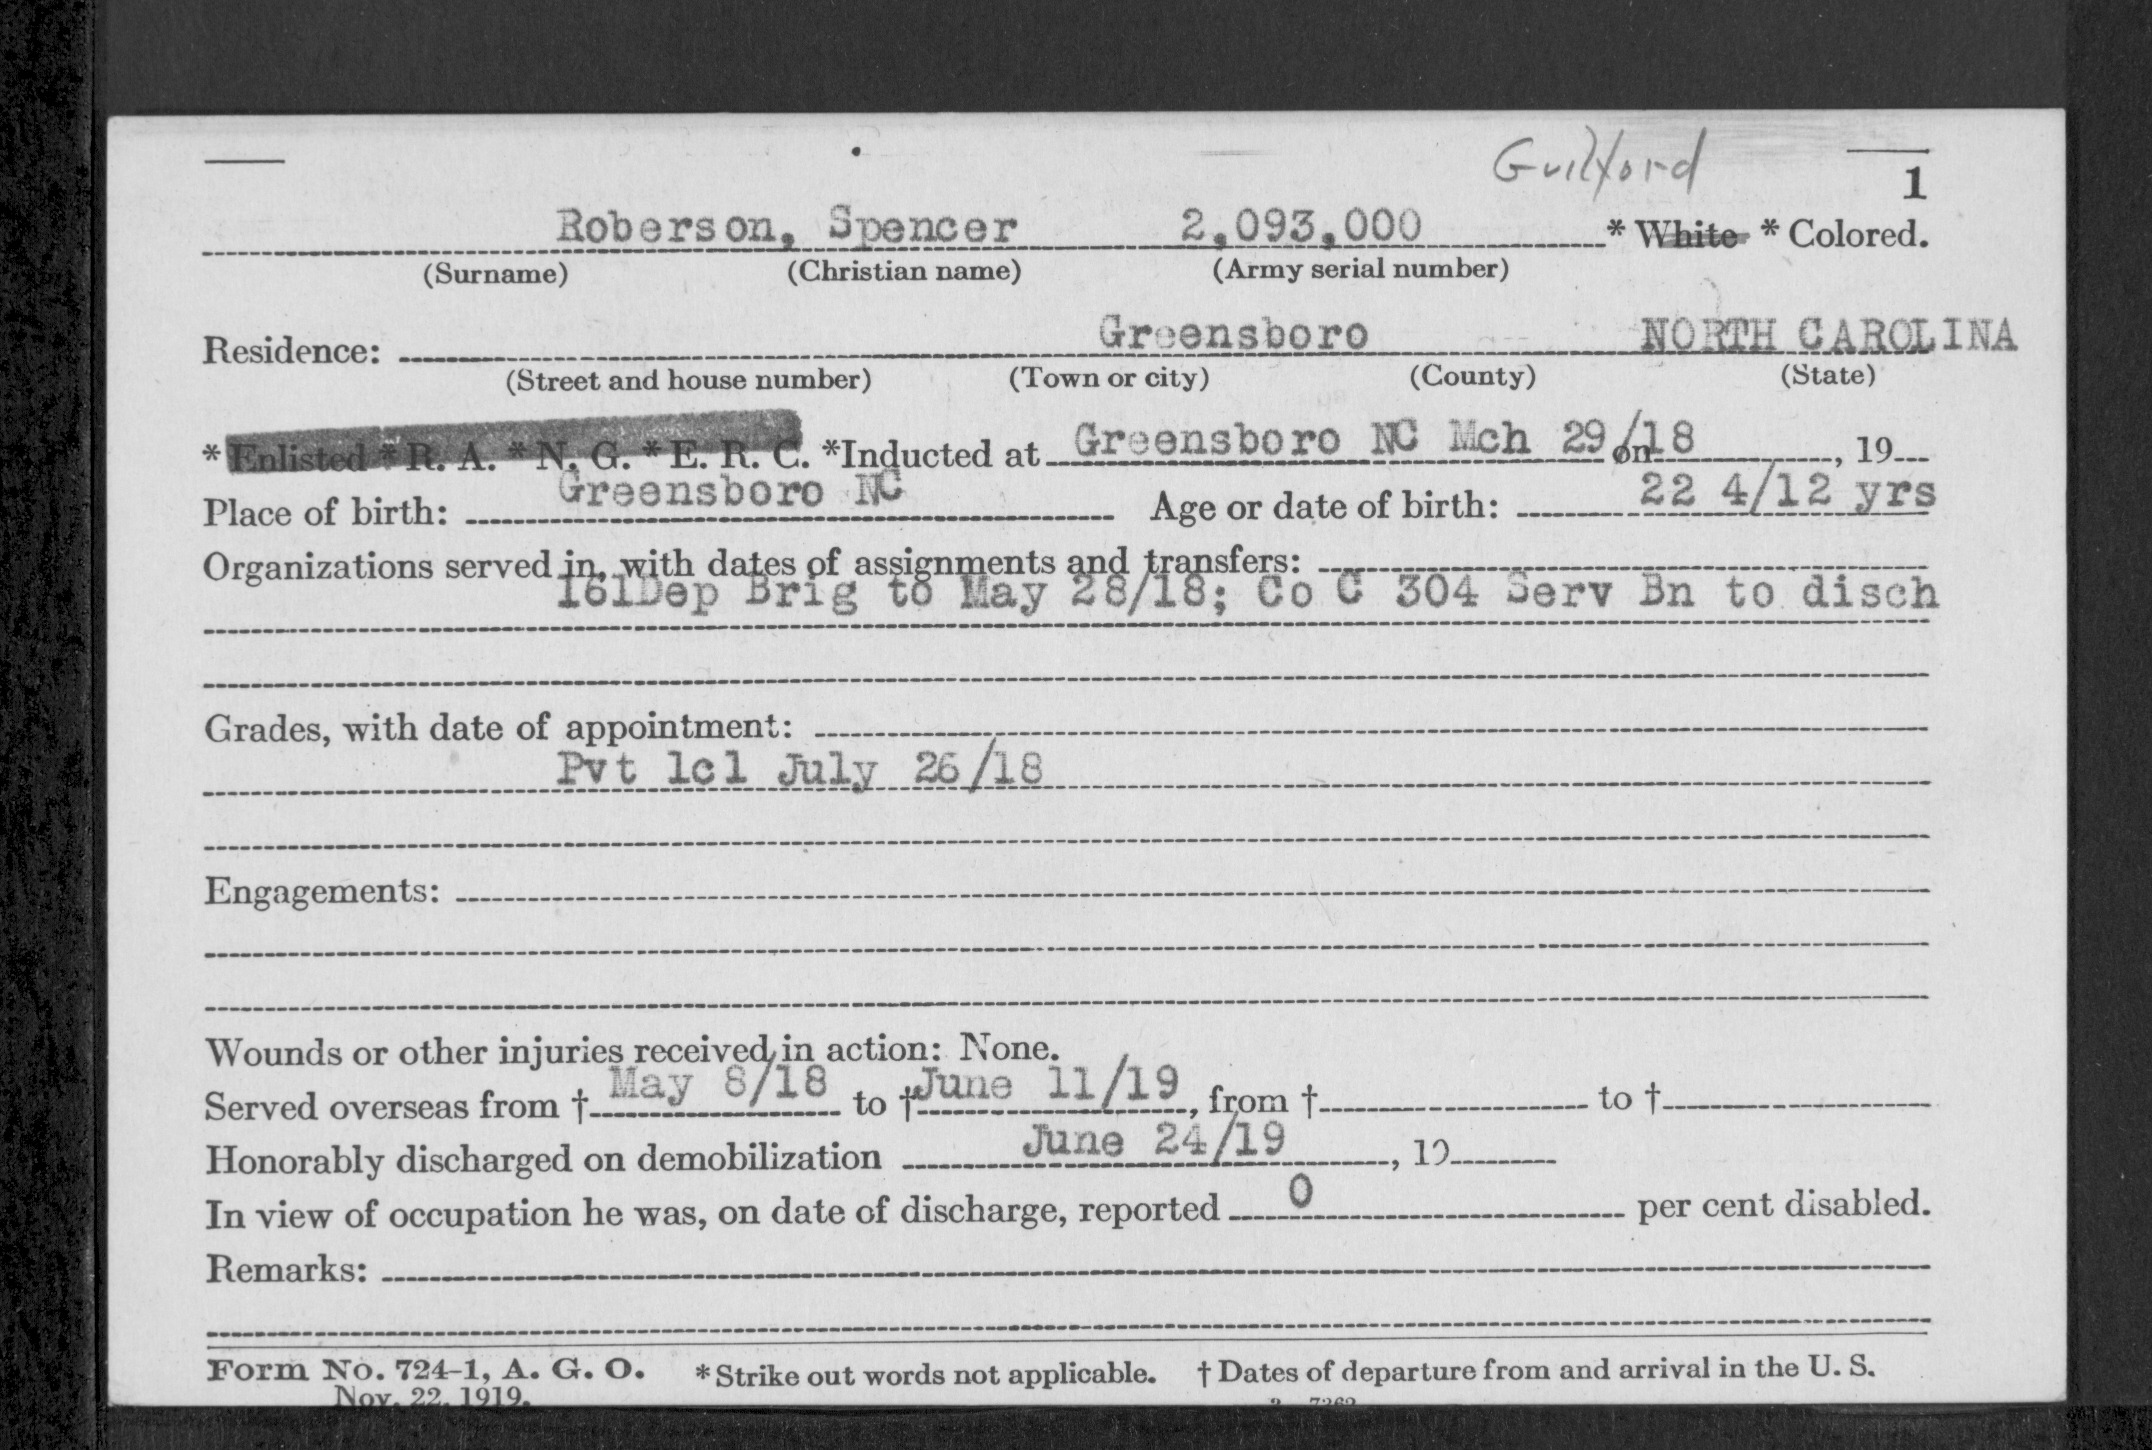 Guilford
1
Roberson, Spencer 2,093,000 * White * Colored.
(Surname) (Christian name) (Army serial number)
Residence: Greensboro NORTH CAROLINA
(Street and house number) (Town or city) (County) (State)
* Enlisted * R. A. * N. G. * E. R. C. *Inducted at Greensboro NC Mch 29/18 on , 19
Place of birth: Greensboro NC Age or date of birth: 22 4/12 yrs
Organizations served in, with dates of assignments and transfers:
161Dep Brig to May 28/18; Co C 304 Serv Bn to disch
Grades, with date of appointment:
Pvt 1cl July 26/18
Engagements:
Wounds or other injuries received in action: None.
Served overseas from † May 8/18 to † June 11/19, from † to †
Honorably discharged on demobilization June 24/19, 19
In view of occupation he was, on date of discharge, reported 0 per cent disabled.
Remarks:
Form No. 724-1, A. G. O. * Strike out words not applicable. † Dates of departure from and arrival in the U. S.
Nov. 22, 1919.